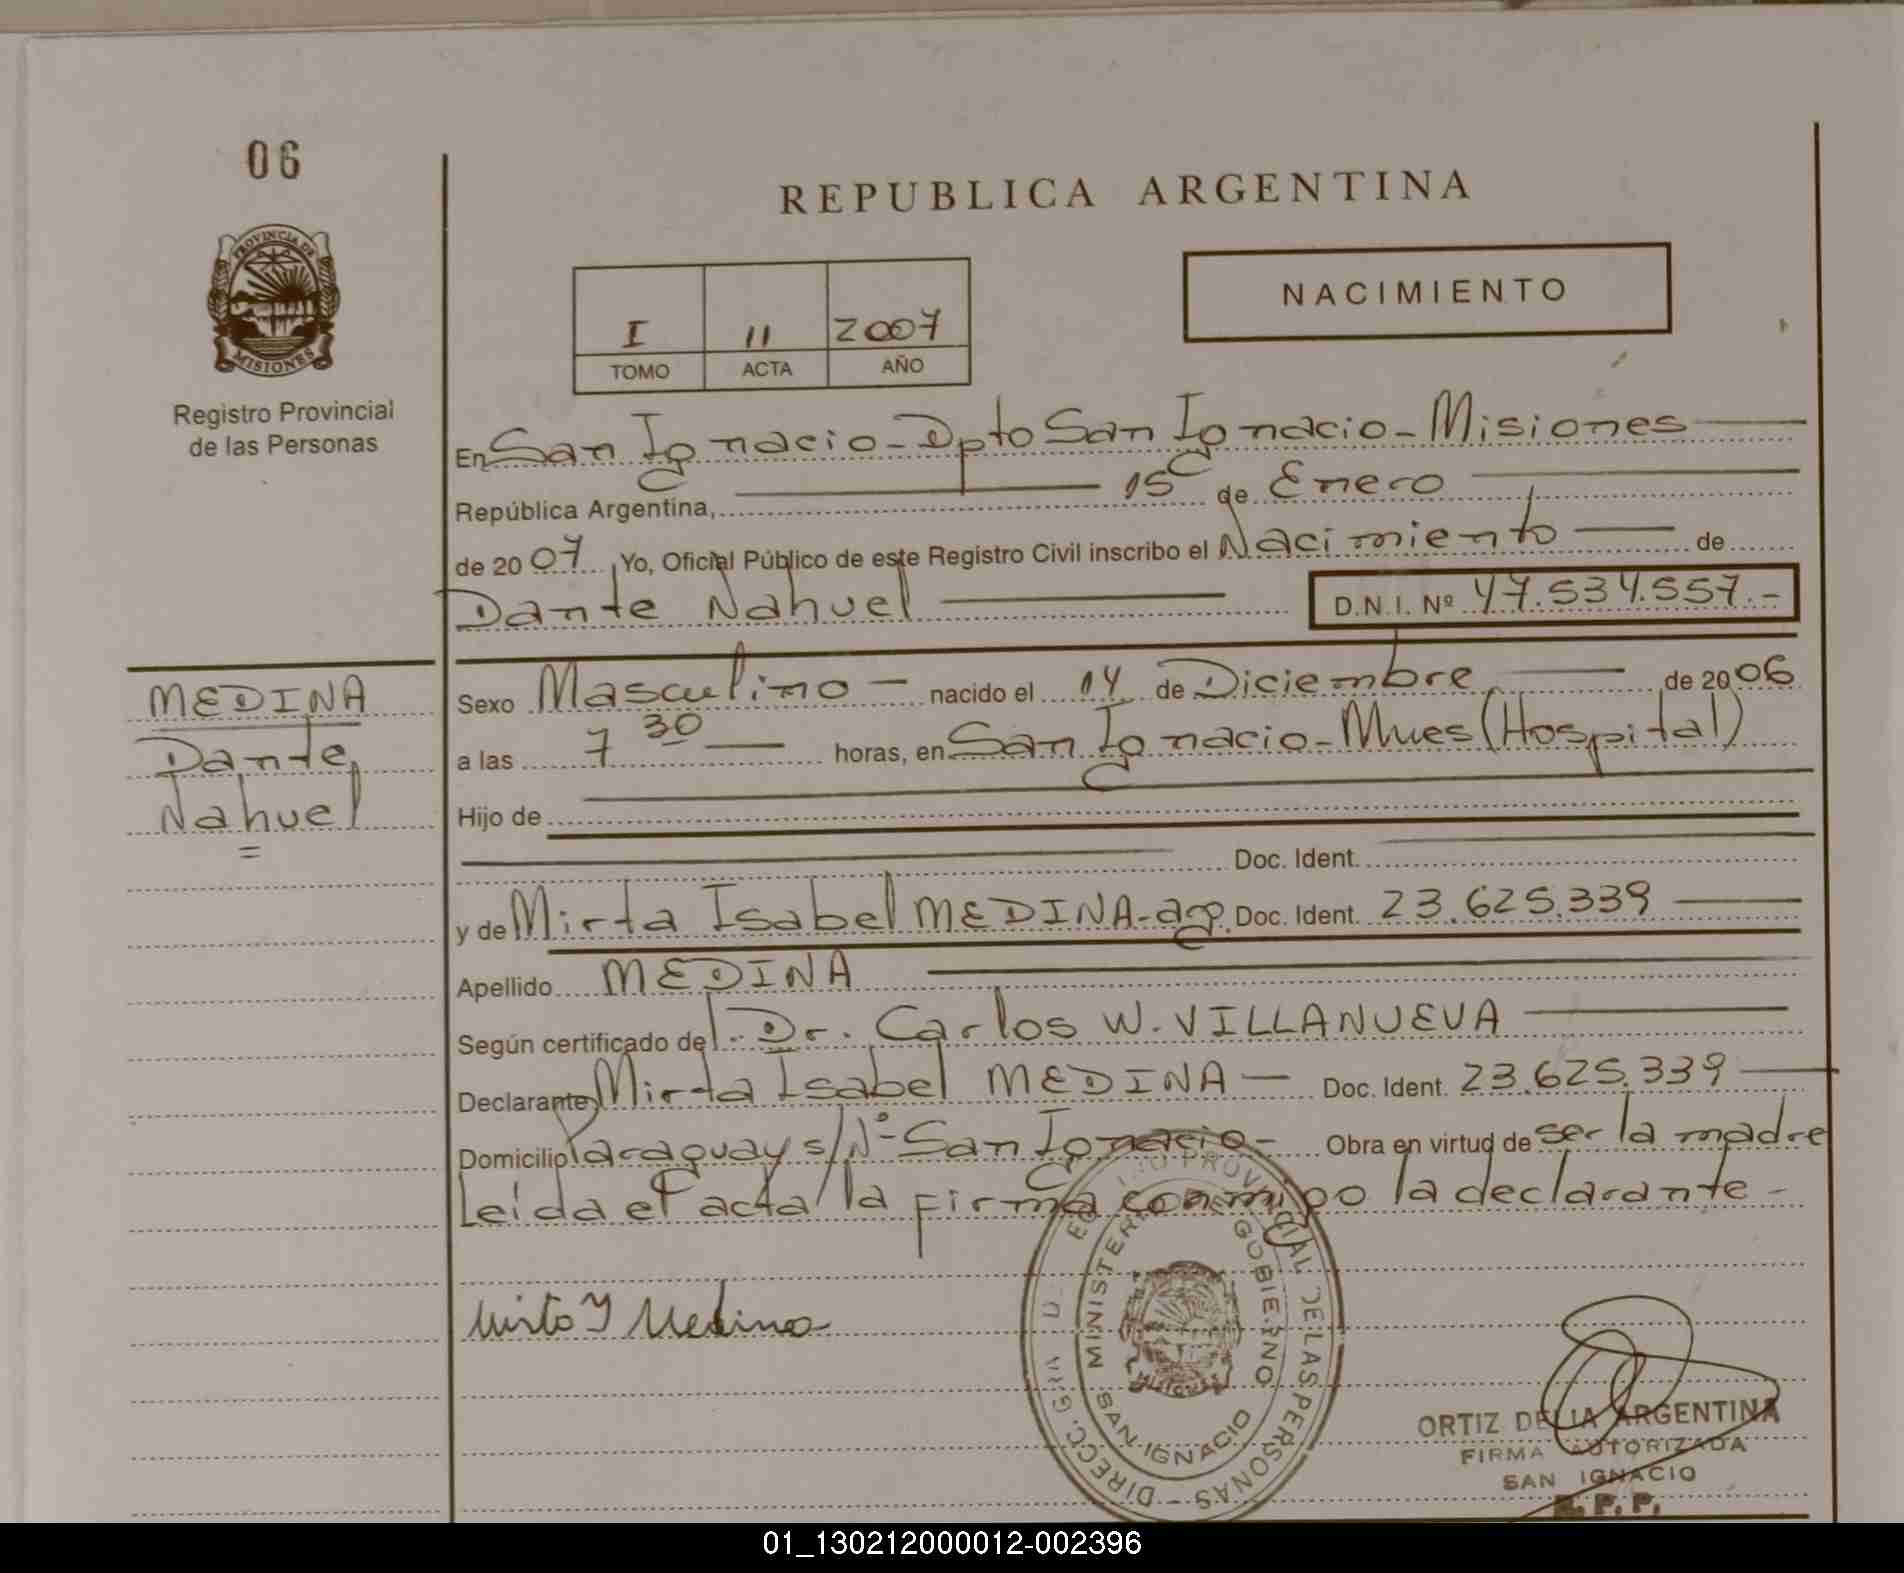 06
PROVINCIA DE
MISIONES
Registro Provincial
de las Personas
REPUBLICA ARGENTINA
I 11 2007
TOMO ACTA AÑO
NACIMIENTO
En San Ignacio - Dpto San Ignacio - Misiones
República Argentina, 15 de Enero
de 2007 Yo, Oficial Público de este Registro Civil inscribo el Nacimiento de
Dante Nahuel D.N.I. Nº 47.534.557.-
MEDINA
Dante
Nahuel
Sexo Masculino - nacido el 14 de Diciembre de 2006
a las 7 30 horas, en San Ignacio - Mnes (Hospital)
Hijo de
Doc. Ident.
y de Mirta Isabel MEDINA - arg. Doc. Ident. 23.625.339
Apellido MEDINA
Según certificado del Dr. Carlos W. VILLANUEVA
Declarante Mirta Isabel MEDINA - Doc. Ident. 23.625.339
Domicilio Paraguay s/Nº - San Ignacio - Obra en virtud de ser la madre
Leída el acta, la firma conmigo la declarante -
Mirta I Medina
PROVINCIAL DE LAS PERSONAS - DIRECC. GRAL
MINISTERIO DE GOBIERNO
SAN IGNACIO
MISIONES
ORTIZ DELIA ARGENTINA
FIRMA AUTORIZADA
SAN IGNACIO
R.P.P.
01_130212000012-002396